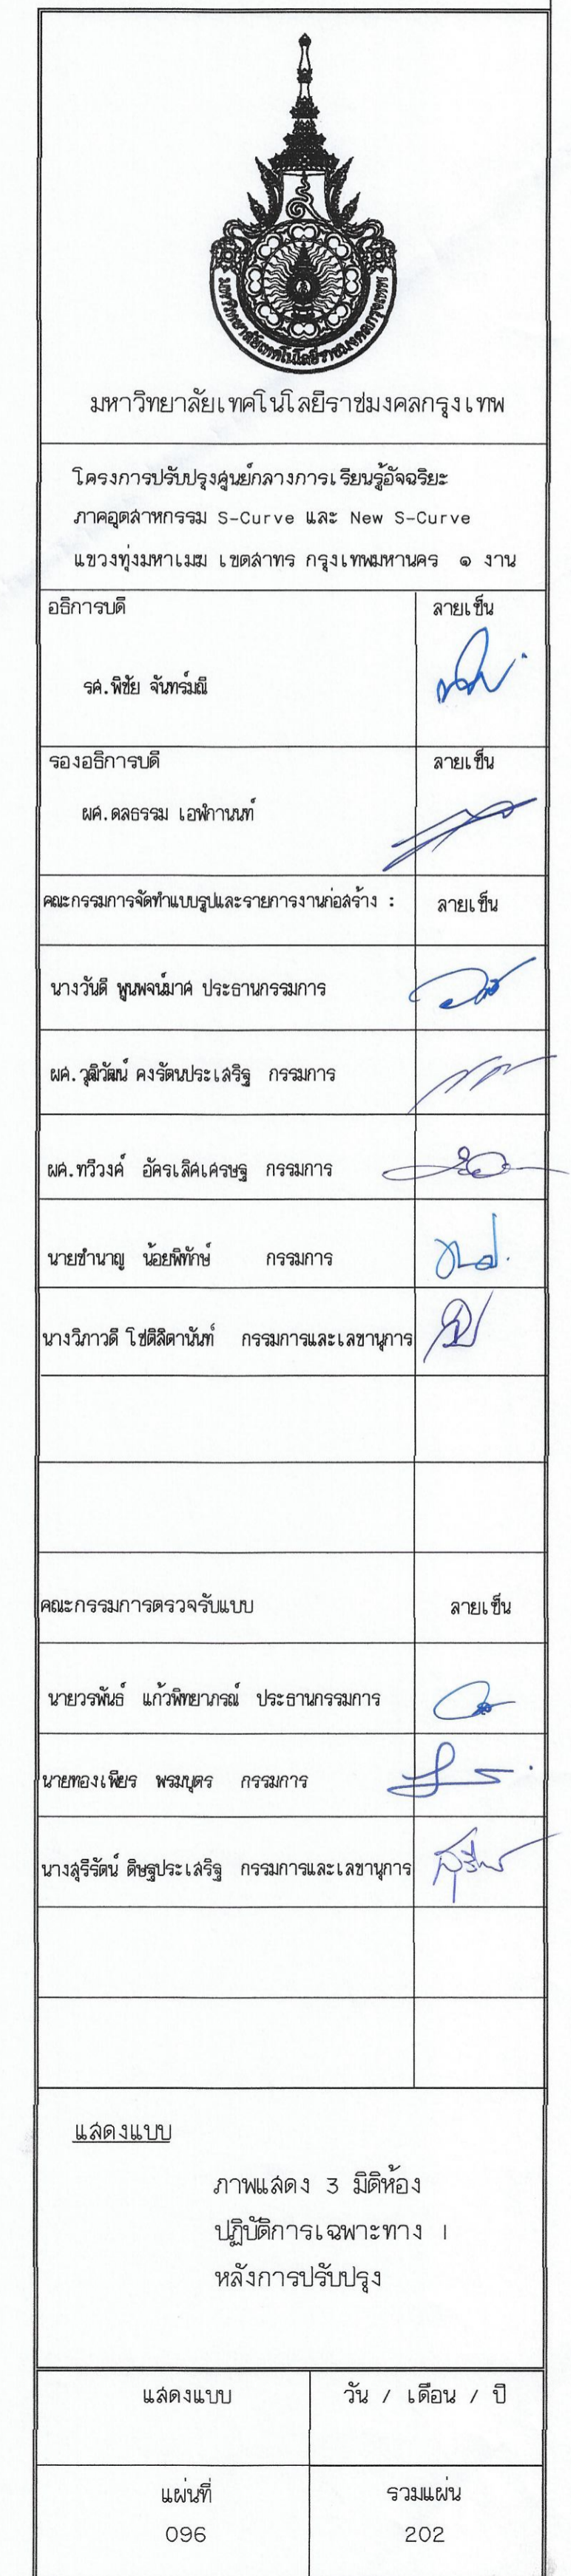 มหาวิทยาลัยเทคโนโลยีราชมงคลกรุงเทพ
มหาวิทยาลัยเทคโนโลยีราชมงคลกรุงเทพ
โครงการปรับปรุงศูนย์กลางการเรียนรู้อัจฉริยะ
ภาคอุตสาหกรรม S-Curve และ New S-Curve
แขวงทุ่งมหาเมฆ เขตสาทร กรุงเทพมหานคร ๑ งาน
อธิการบดี ลายเซ็น
รศ.พิชัย จันทร์มณี
รองอธิการบดี ลายเซ็น
ผศ.ดลธรรม เอฬกานนท์
คณะกรรมการจัดทำแบบรูปและรายการงานก่อสร้าง : ลายเซ็น
นางวันดี พูนพจน์มาศ ประธานกรรมการ
ผศ.วุฒิวัฒน์ คงรัตนประเสริฐ กรรมการ
ผศ.ทวีวงศ์ อัครเลิศเศรษฐ กรรมการ
นายชำนาญ น้อยพิทักษ์ กรรมการ
นางวิภาวดี โชติลิตานันท์ กรรมการและเลขานุการ
คณะกรรมการตรวจรับแบบ ลายเซ็น
นายวรพันธ์ แก้วพิทยาภรณ์ ประธานกรรมการ
นายทองเพียร พรมบุตร กรรมการ
นางสุรีรัตน์ ดิษฐประเสริฐ กรรมการและเลขานุการ
แสดงแบบ
ภาพแสดง 3 มิติห้อง
ปฏิบัติการเฉพาะทาง 1
หลังการปรับปรุง
แสดงแบบ วัน / เดือน / ปี
แผ่นที่ รวมแผ่น
096 202